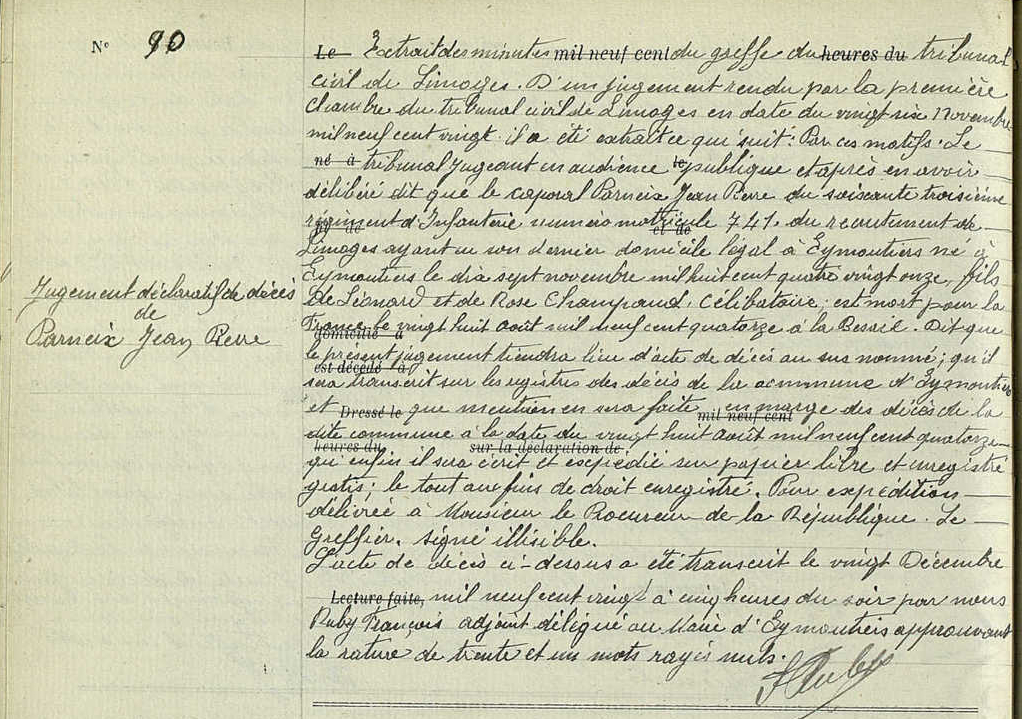 N° 90
Jugement déclaratif de décès
de
Parneix Jean Pierre
Le Extrait des minutes mil neuf cent du greffe du heures du tribunal
civil de Limoges. D'un jugement rendu par la première
chambre du tribunal civil de Limoges en date du vingt six Novembre
mil neuf cent vingt il a été extrait ce qui suit: Par ces motifs. Le
né à tribunal jugeant en audience le publique et après en avoir
délibéré dit que le caporal Parneix Jean Pierre du soixante troisième
régiment d'Infanterie numéro matricule 741. du recrutement de
et de
Limoges ayant eu son dernier domicile légal à Eymoutiers né à
Eymoutiers le dix sept novembre mil huit cent quatre vingt onze, fils
de Léonard et de Rose Champaud, célibataire, est mort pour la
France le vingt huit août mil neuf cent quatorze à la Bessie. Dit que
domicilié à
le présent jugement tiendra lieu d'acte de décès au sus nommé; qu'il
est décédé à
sera transcrit sur les registres des décès de la commune d'Eymoutiers
et Dressé le que mention en sera faite en marge des décès de la
mil neuf cent
dite commune à la date du vingt huit août mil neuf cent quatorze
heures du sur la déclaration de
qu'enfin il sera écrit et expédié sur papier libre et enregistré
gratis; le tout aux fins de droit enregistré. Pour expédition
délivrée à Monsieur le Procureur de la République. Le
Greffier. signé illisible.
L'acte de décès ci-dessus a été transcrit le vingt Décembre
Lecture faite, mil neuf cent vingt à cinq heures du soir par nous
Ruby François adjoint délégué au Maire d'Eymoutiers approuvant
la rature de trente et un mots rayés nuls.
F Ruby